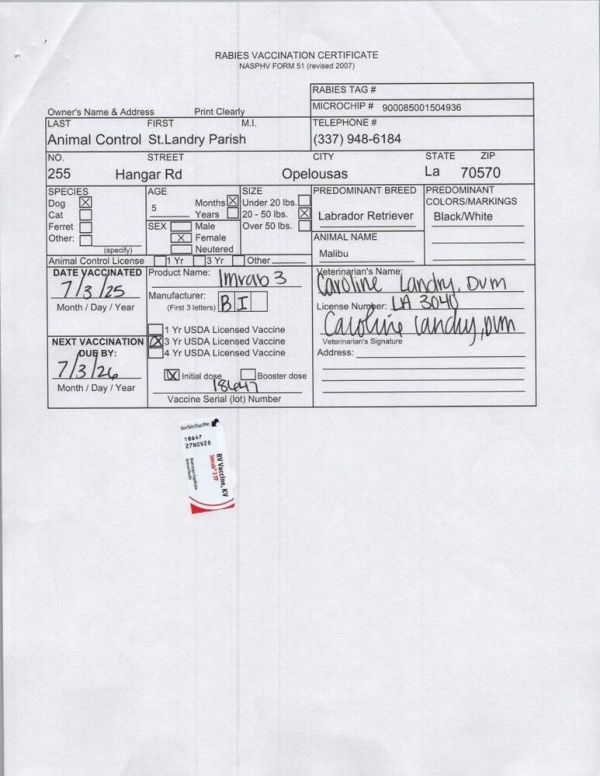 RABIES VACCINATION CERTIFICATE
NASPHV FORM 51 (revised 2007)
RABIES TAG #
Owner's Name & Address Print Clearly
MICROCHIP # 900085001504936
LAST FIRST M.I. TELEPHONE #
Animal Control St.Landry Parish (337) 948-6184
NO. STREET CITY STATE ZIP
255 Hangar Rd Opelousas La 70570
SPECIES AGE SIZE PREDOMINANT BREED PREDOMINANT COLORS/MARKINGS
Dog ☒ 5 Months ☒ Under 20 lbs. ☐
Cat ☐ Years ☐ 20 - 50 lbs. ☒ Labrador Retriever Black/White
Ferret ☐ SEX ☐ Male Over 50 lbs. ☐
Other: ☐ ☒ Female ANIMAL NAME
(specify) ☐ Neutered Malibu
Animal Control License ☐ 1 Yr ☐ 3 Yr ☐ Other
DATE VACCINATED Product Name: Imrab 3 Veterinarian's Name: Caroline Landry, DVM
7/3/25 Manufacturer: B I License Number: LA 3040
Month / Day / Year (First 3 letters) Caroline Landry, DVM
☐ 1 Yr USDA Licensed Vaccine Veterinarian's Signature
NEXT VACCINATION ☒ 3 Yr USDA Licensed Vaccine Address:
DUE BY: ☐ 4 Yr USDA Licensed Vaccine
7/3/26 ☒ Initial dose ☐ Booster dose
Month / Day / Year 18647
Vaccine Serial (lot) Number
18647
27NOV26
RV Vaccine, KV